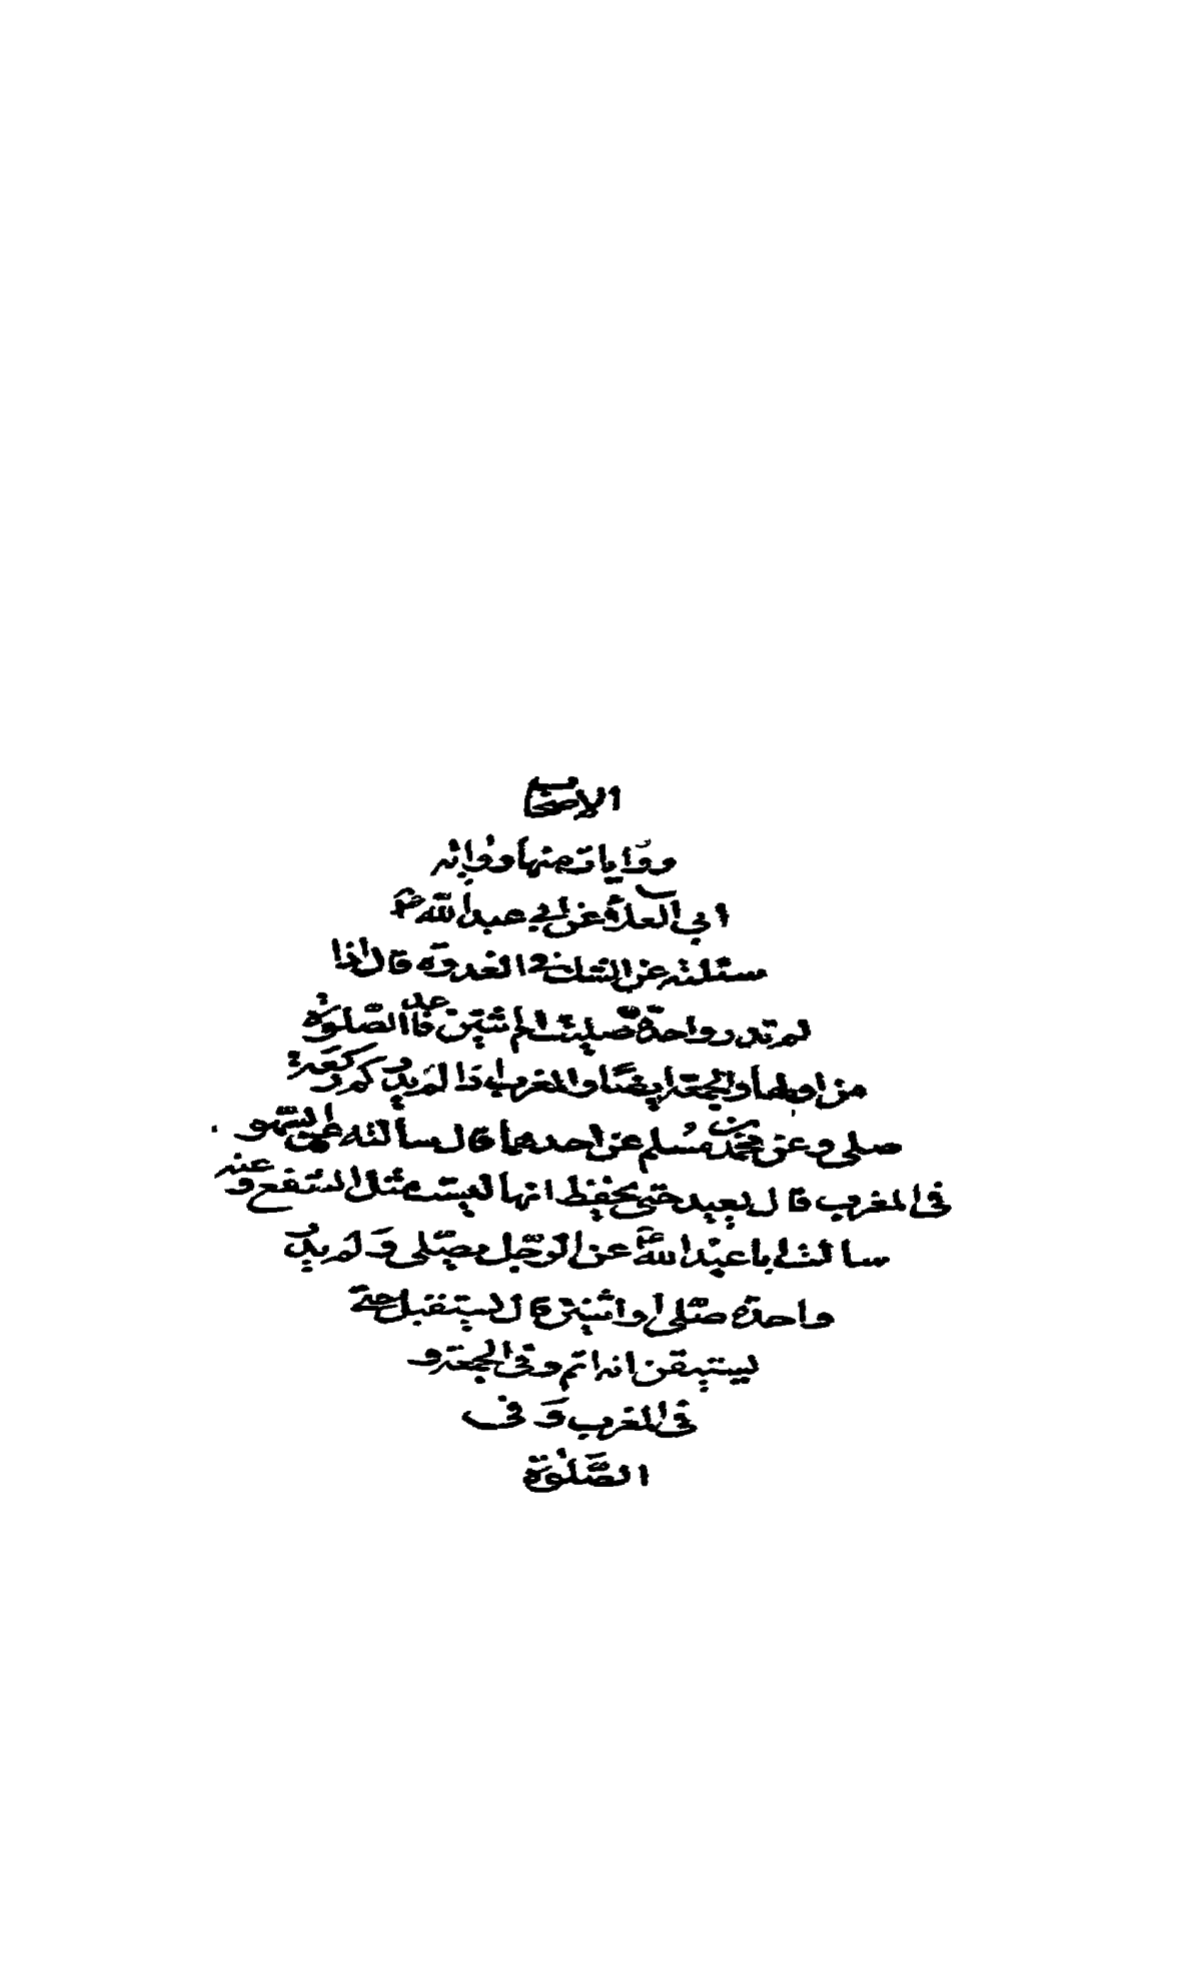 الاصحاب
وروايات منها رواية
ابي العلا عن ابي عبد الله ع
سئلته عن الشك في الغدوة قال اذا
لم تدر واحدة صليت ام ثنتين فاعد الصلوة
من اولها والجمعة ايضا والمغرب اذا لم يدر كم ركعة
صلى وعن محمد بن مسلم عن احدهما قال سألته عن السهو
في المغرب قال يعيد حتى يحفظ انها ليست مثل الشفع وعنه
سالت ابا عبد الله ع عن الرجل يصلى ولم يدر
واحدة صلى او اثنتين قال يستقبل حتى
يستيقن انه اتم وفي الجمعة و
في المغرب و في
الصلوة